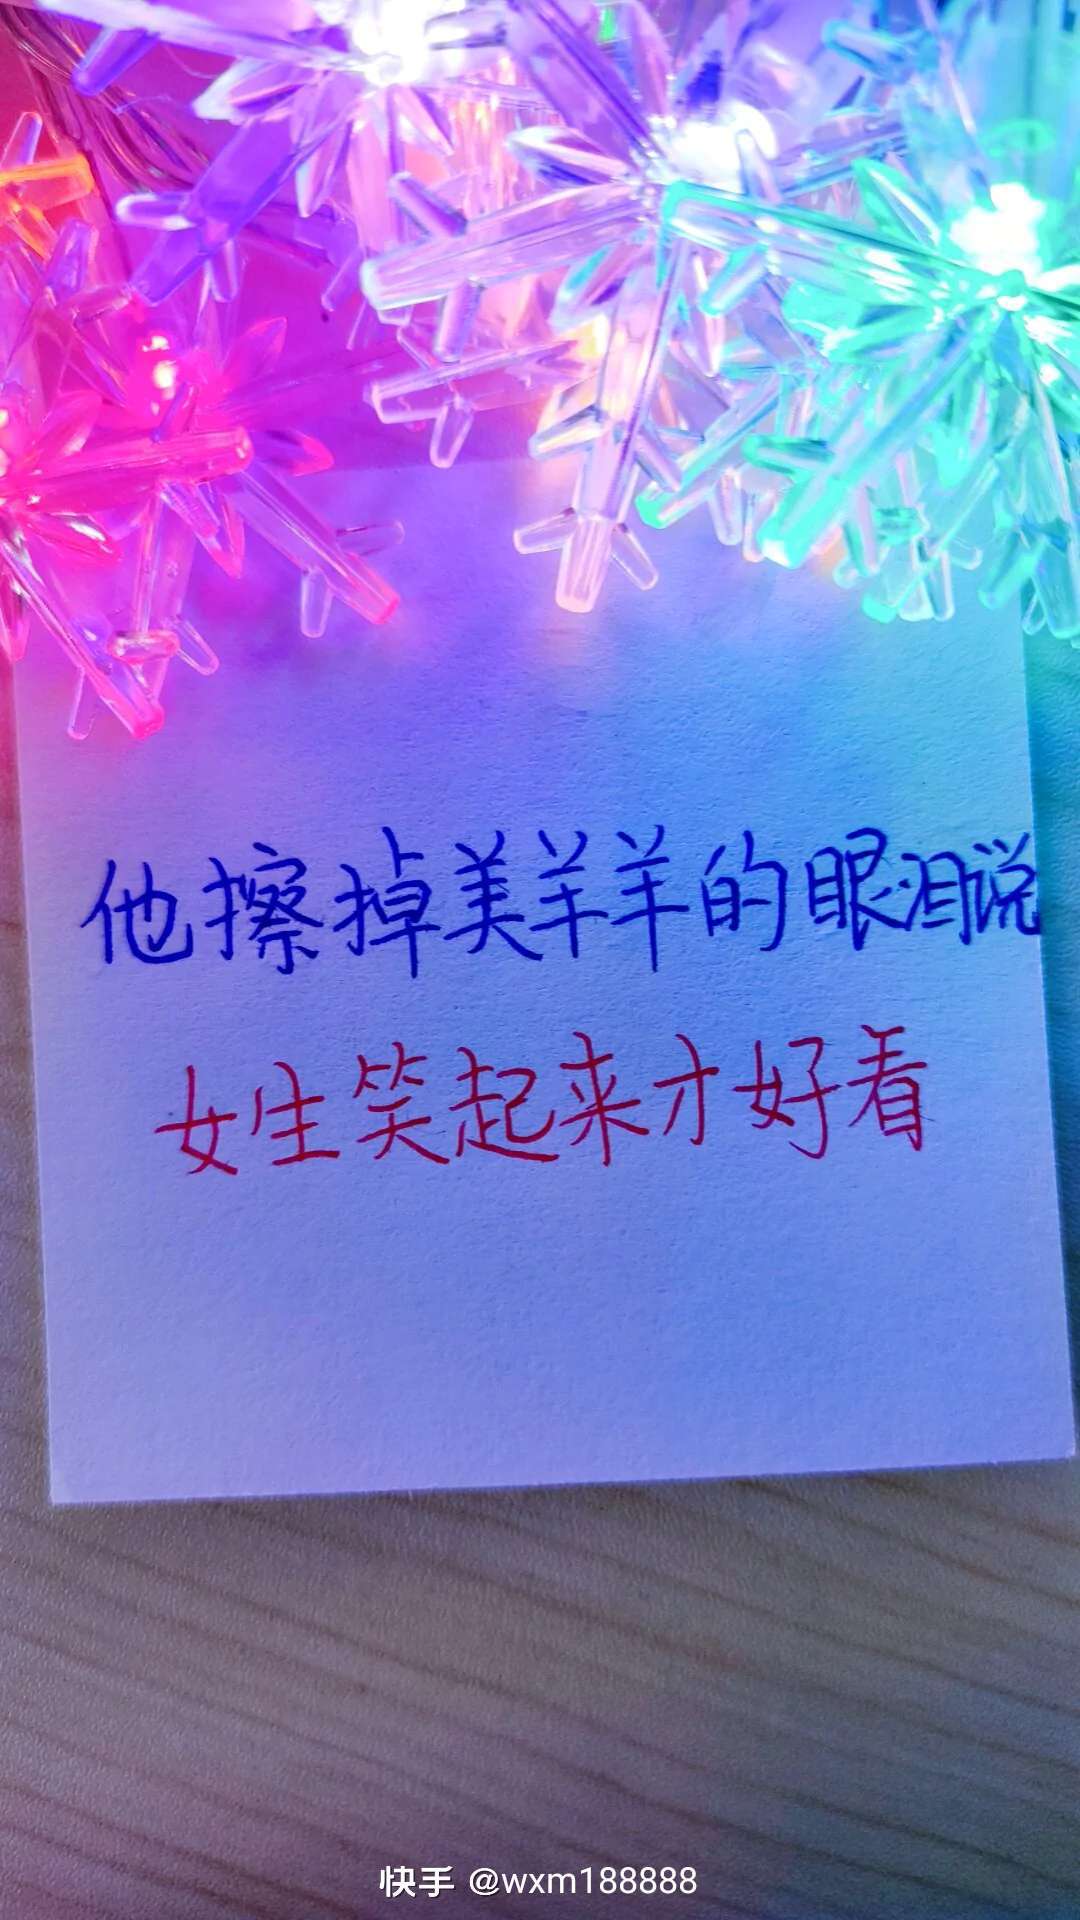 他擦掉美羊羊的眼泪说
女生笑起来才好看
快手 @wxm188888